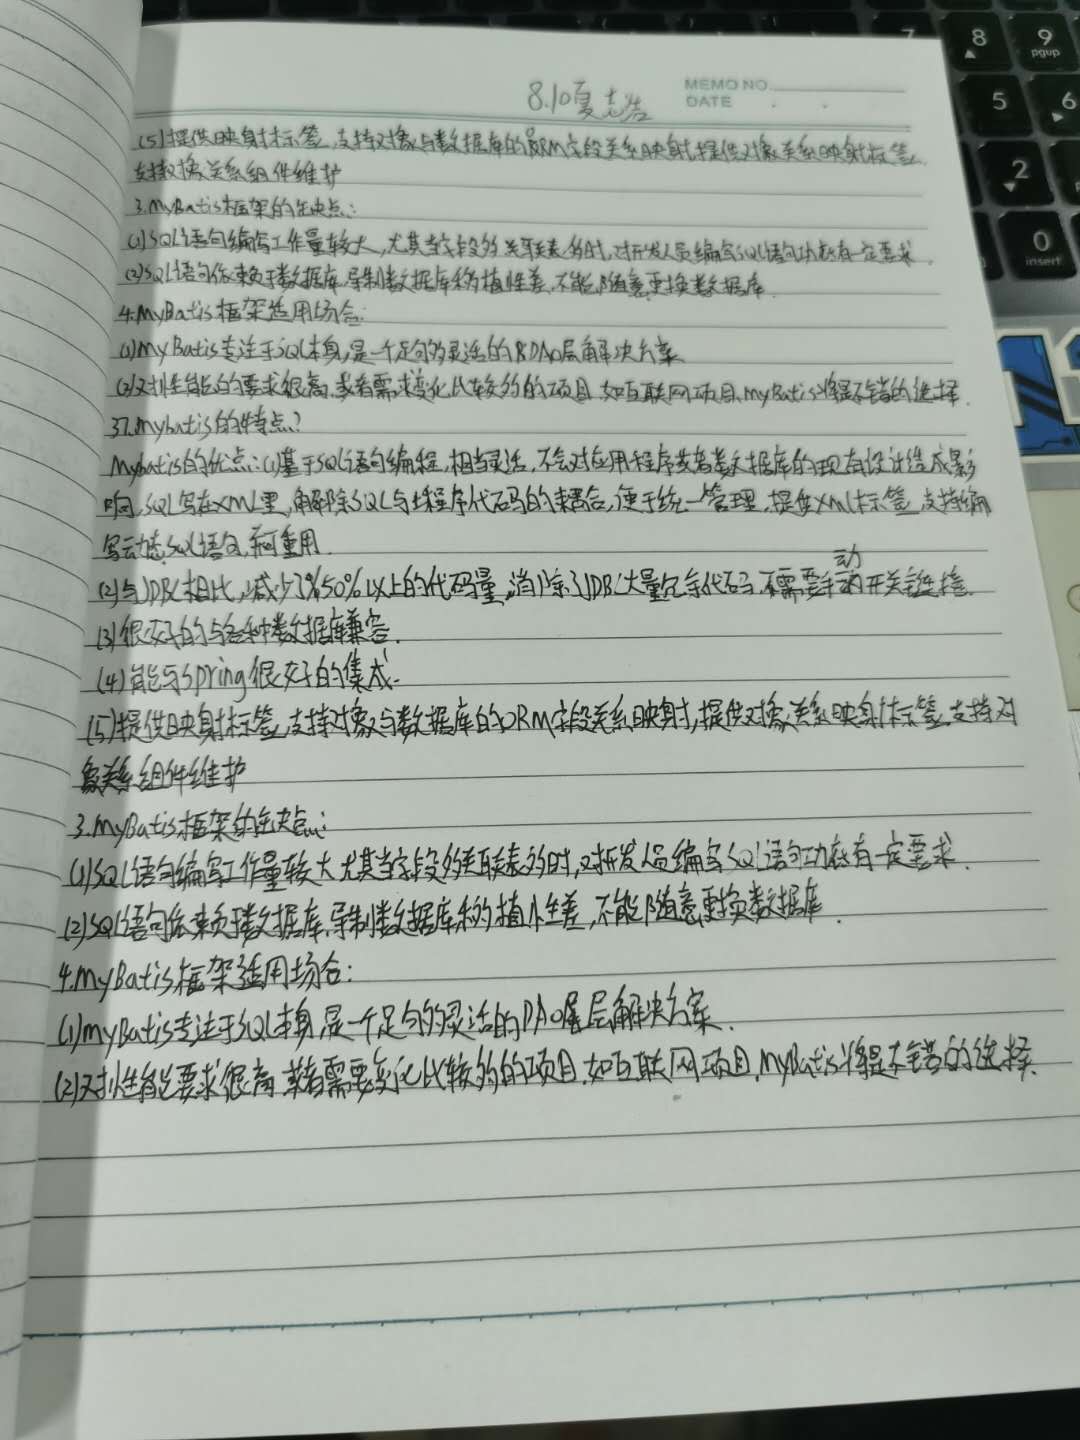 8.10夏志浩
MEMO NO.
DATE
(5)提供映射标签,支持对象与数据库的ORM字段关系映射,提供对象关系映射标签,
支持对象关系组件维护
3.MyBatis框架的缺点:
(1)SQL语句编写工作量较大,尤其当字段多关联表多时,对开发人员编写SQL语句功底有一定要求.
(2)SQL语句依赖于数据库,导制数据库移植性差,不能随意更换数据库.
4.MyBatis框架适用场合:
(1)MyBatis专注于SQL本身,是一个足够灵活的DAO层解决方案
(2)对性能的要求很高,或者需求变化比较多的项目,如互联网项目,MyBatis将是不错的选择.
37.mybatis的特点?
Mybatis的优点:(1)基于SQL语句编程,相当灵活,不会对应用程序或者数据库的现有设计造成影
响,SQL写在XML里,解除SQL与程序代码的耦合,便于统一管理,提供XML标签,支持编
写动态SQL语句,并可重用.
(2)与JDBC相比,减少了50%以上的代码量,消除了JDBC大量冗余代码,不需要手动开关连接.
(3)很好的与各种数据库兼容.
(4)能与Spring很好的集成.
(5)提供映射标签,支持对象与数据库的ORM字段关系映射,提供对象关系映射标签,支持对
象关系组件维护
3.MyBatis框架的缺点:
(1)SQL语句编写工作量较大,尤其当字段多关联表多时,对开发人员编写SQL语句功底有一定要求.
(2)SQL语句依赖于数据库,导制数据库移植性差,不能随意更换数据库.
4.MyBatis框架适用场合:
(1)MyBatis专注于SQL本身,是一个足够的灵活的DAO层解决方案.
(2)对性能要求很高,或者需要变化比较多的项目,如互联网项目,MyBatis将是不错的选择.
7
8
9
pgup
5
6
2
3
0
insert